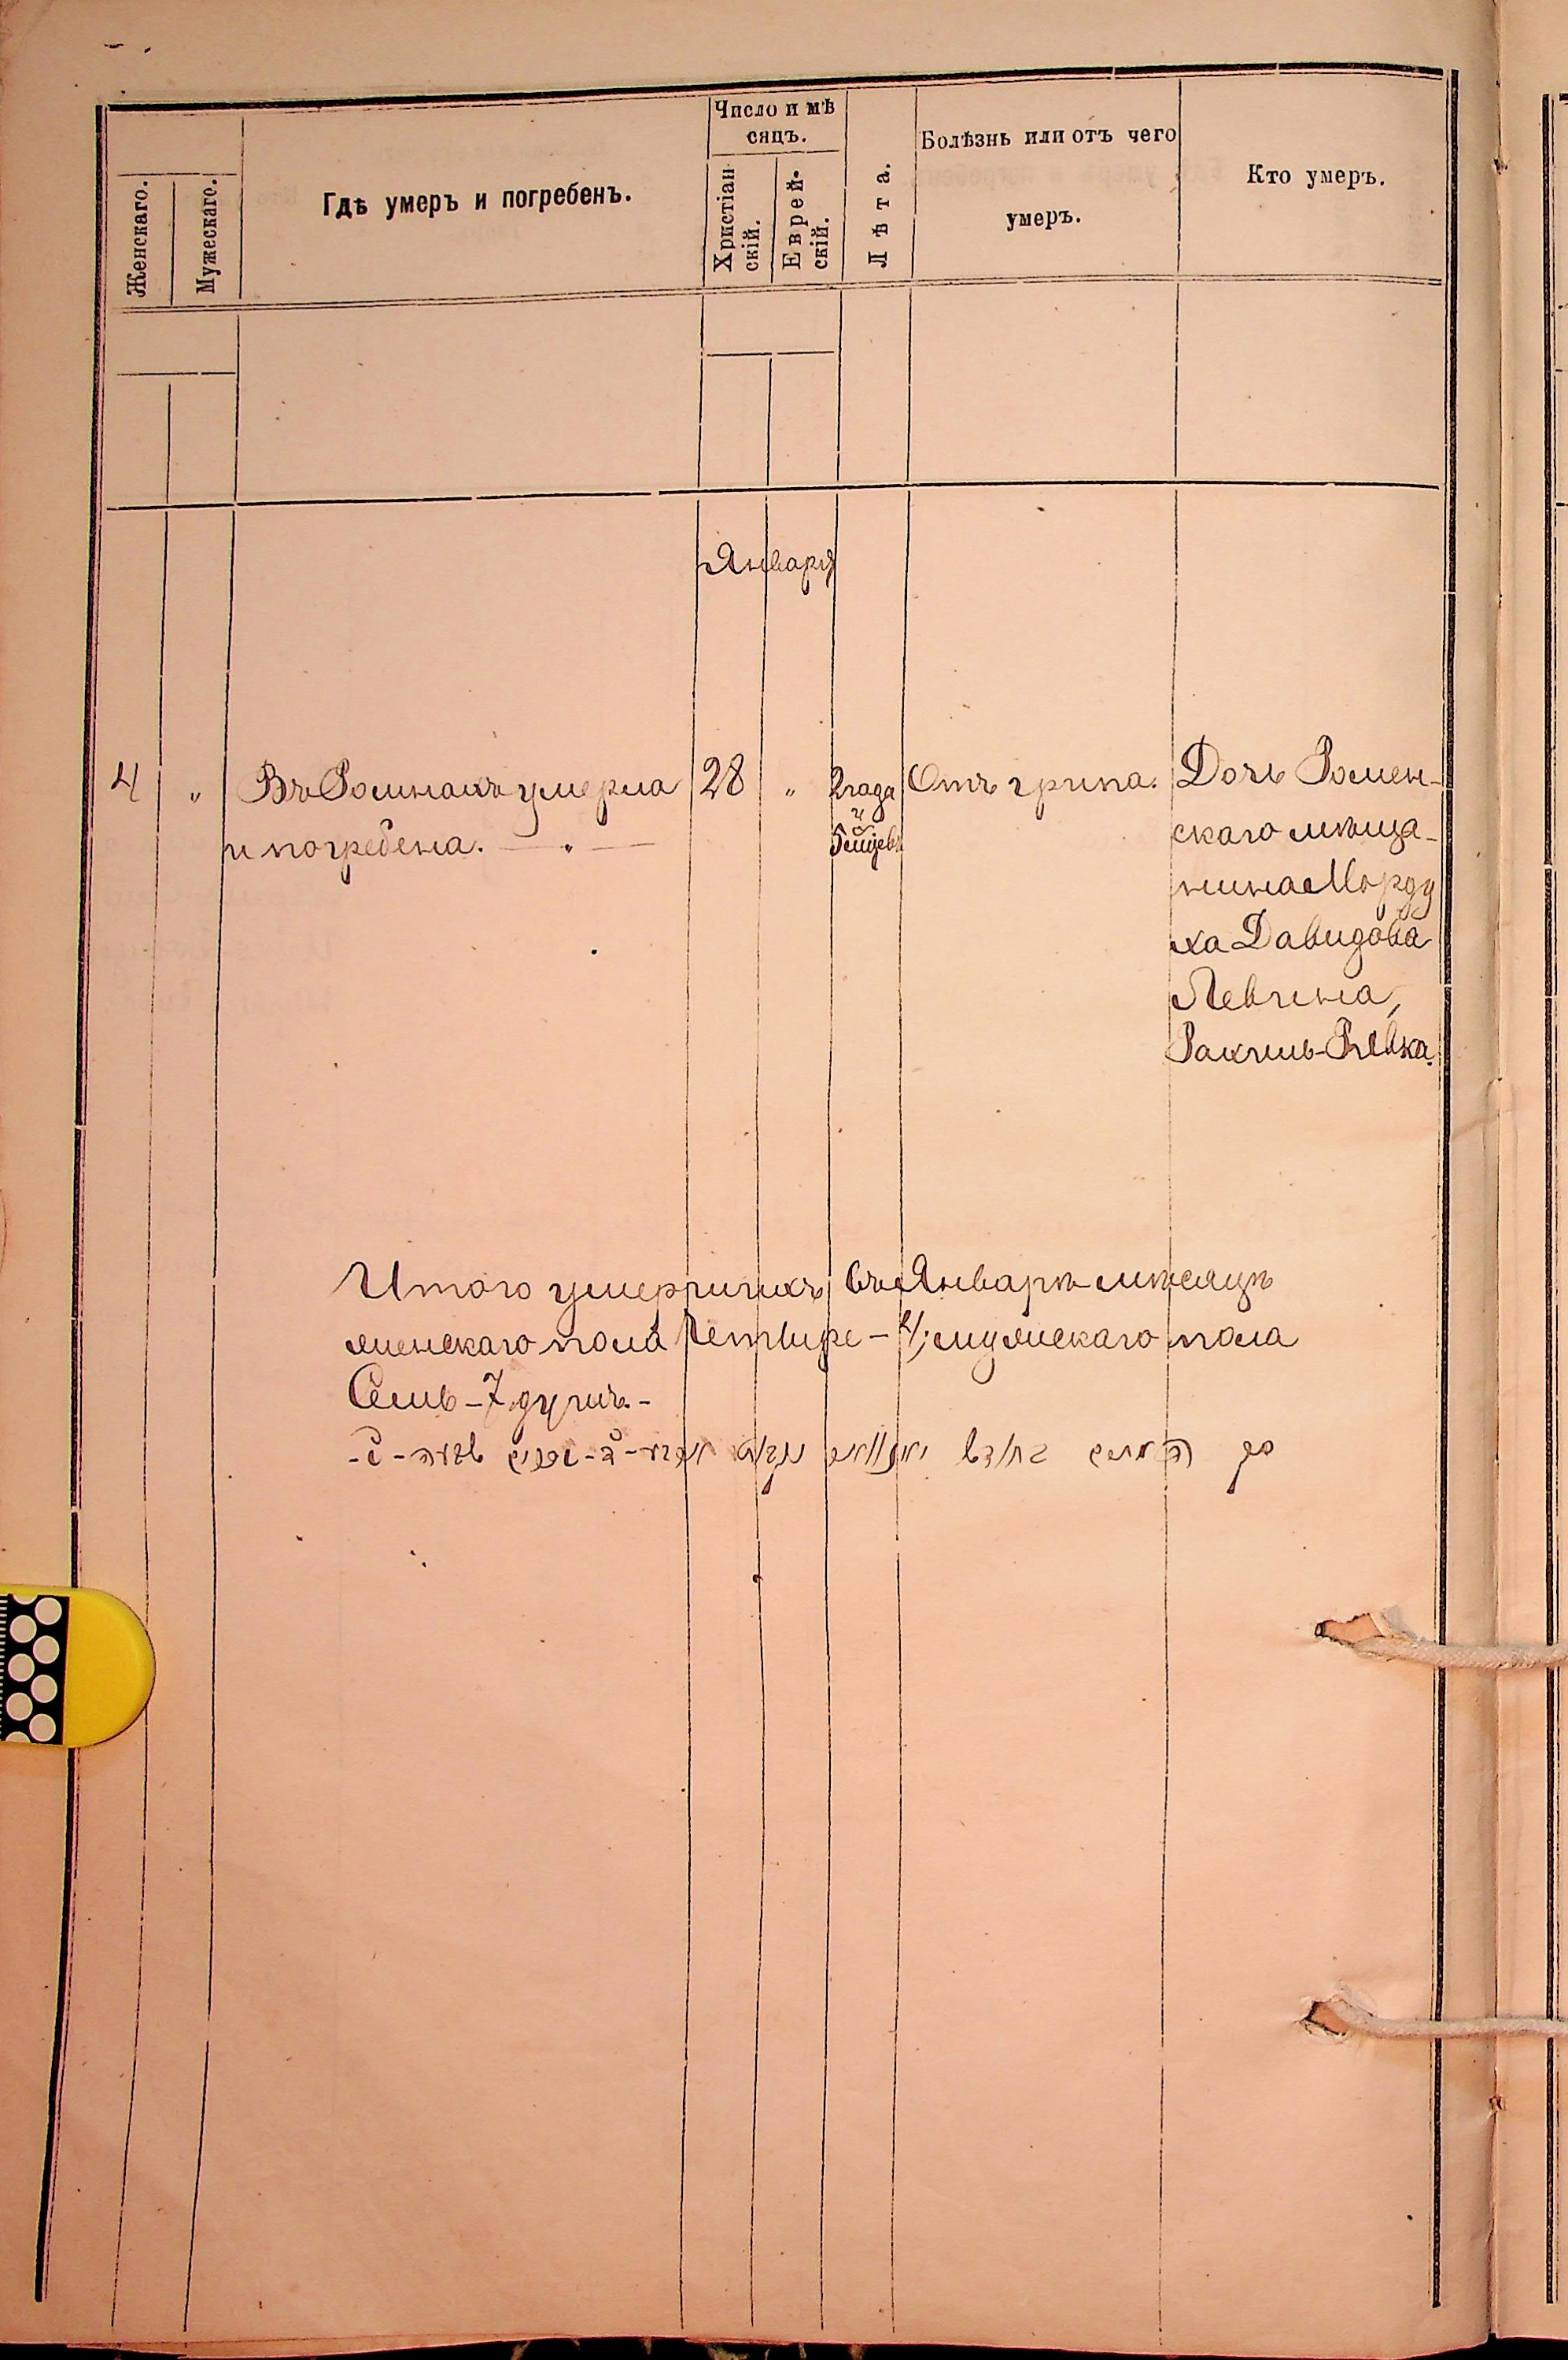 Женскаго.
Мужескаго.
Гдѣ умеръ и погребенъ.
Число и мѣ
сяцъ.
Христіан
скій.
Еврей-
скій.
Лѣта.
Болѣзнь или отъ чего
умеръ.
Кто умеръ.
Января
4 " Въ Ромнахъ умерла
и погребена. — " —
28 "
2 года
и
5 месцевъ
Отъ грипа.
Дочь Ромен-
скаго мѣща-
нина Морду
ха Давидова
Левина,
Рахиль-Ривка.
Итого умершихъ въ Январѣ мѣсяцѣ
женскаго пола Четыре - 4; мужескаго пола
Семь - 7 душъ. -